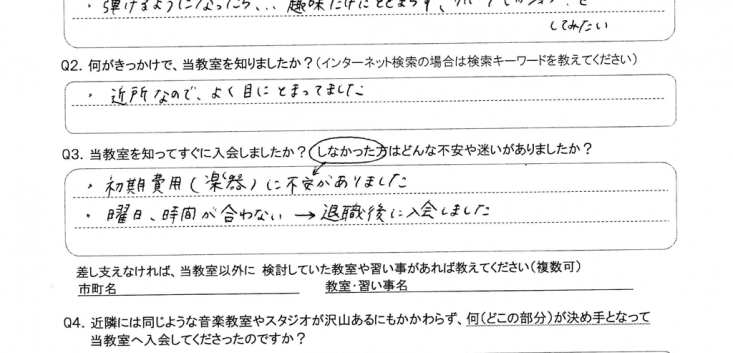 ・弾けるようになったら、、、趣味だけにとどまらず、グループセッション、を
してみたい
Q2. 何がきっかけで、当教室を知りましたか？（インターネット検索の場合は検索キーワードを教えてください）
・近所なので、よく目にとまってました
Q3. 当教室を知ってすぐに入会しましたか？ しなかった方はどんな不安や迷いがありましたか？
・初期費用（楽器）に不安がありました
・曜日、時間が合わない → 退職後に入会しました
差し支えなければ、当教室以外に 検討していた教室や習い事があれば教えてください（複数可）
市町名 教室・習い事名
Q4. 近隣には同じような音楽教室やスタジオが沢山あるにもかかわらず、何（どこの部分）が決め手となって
当教室へ入会してくださったのですか？